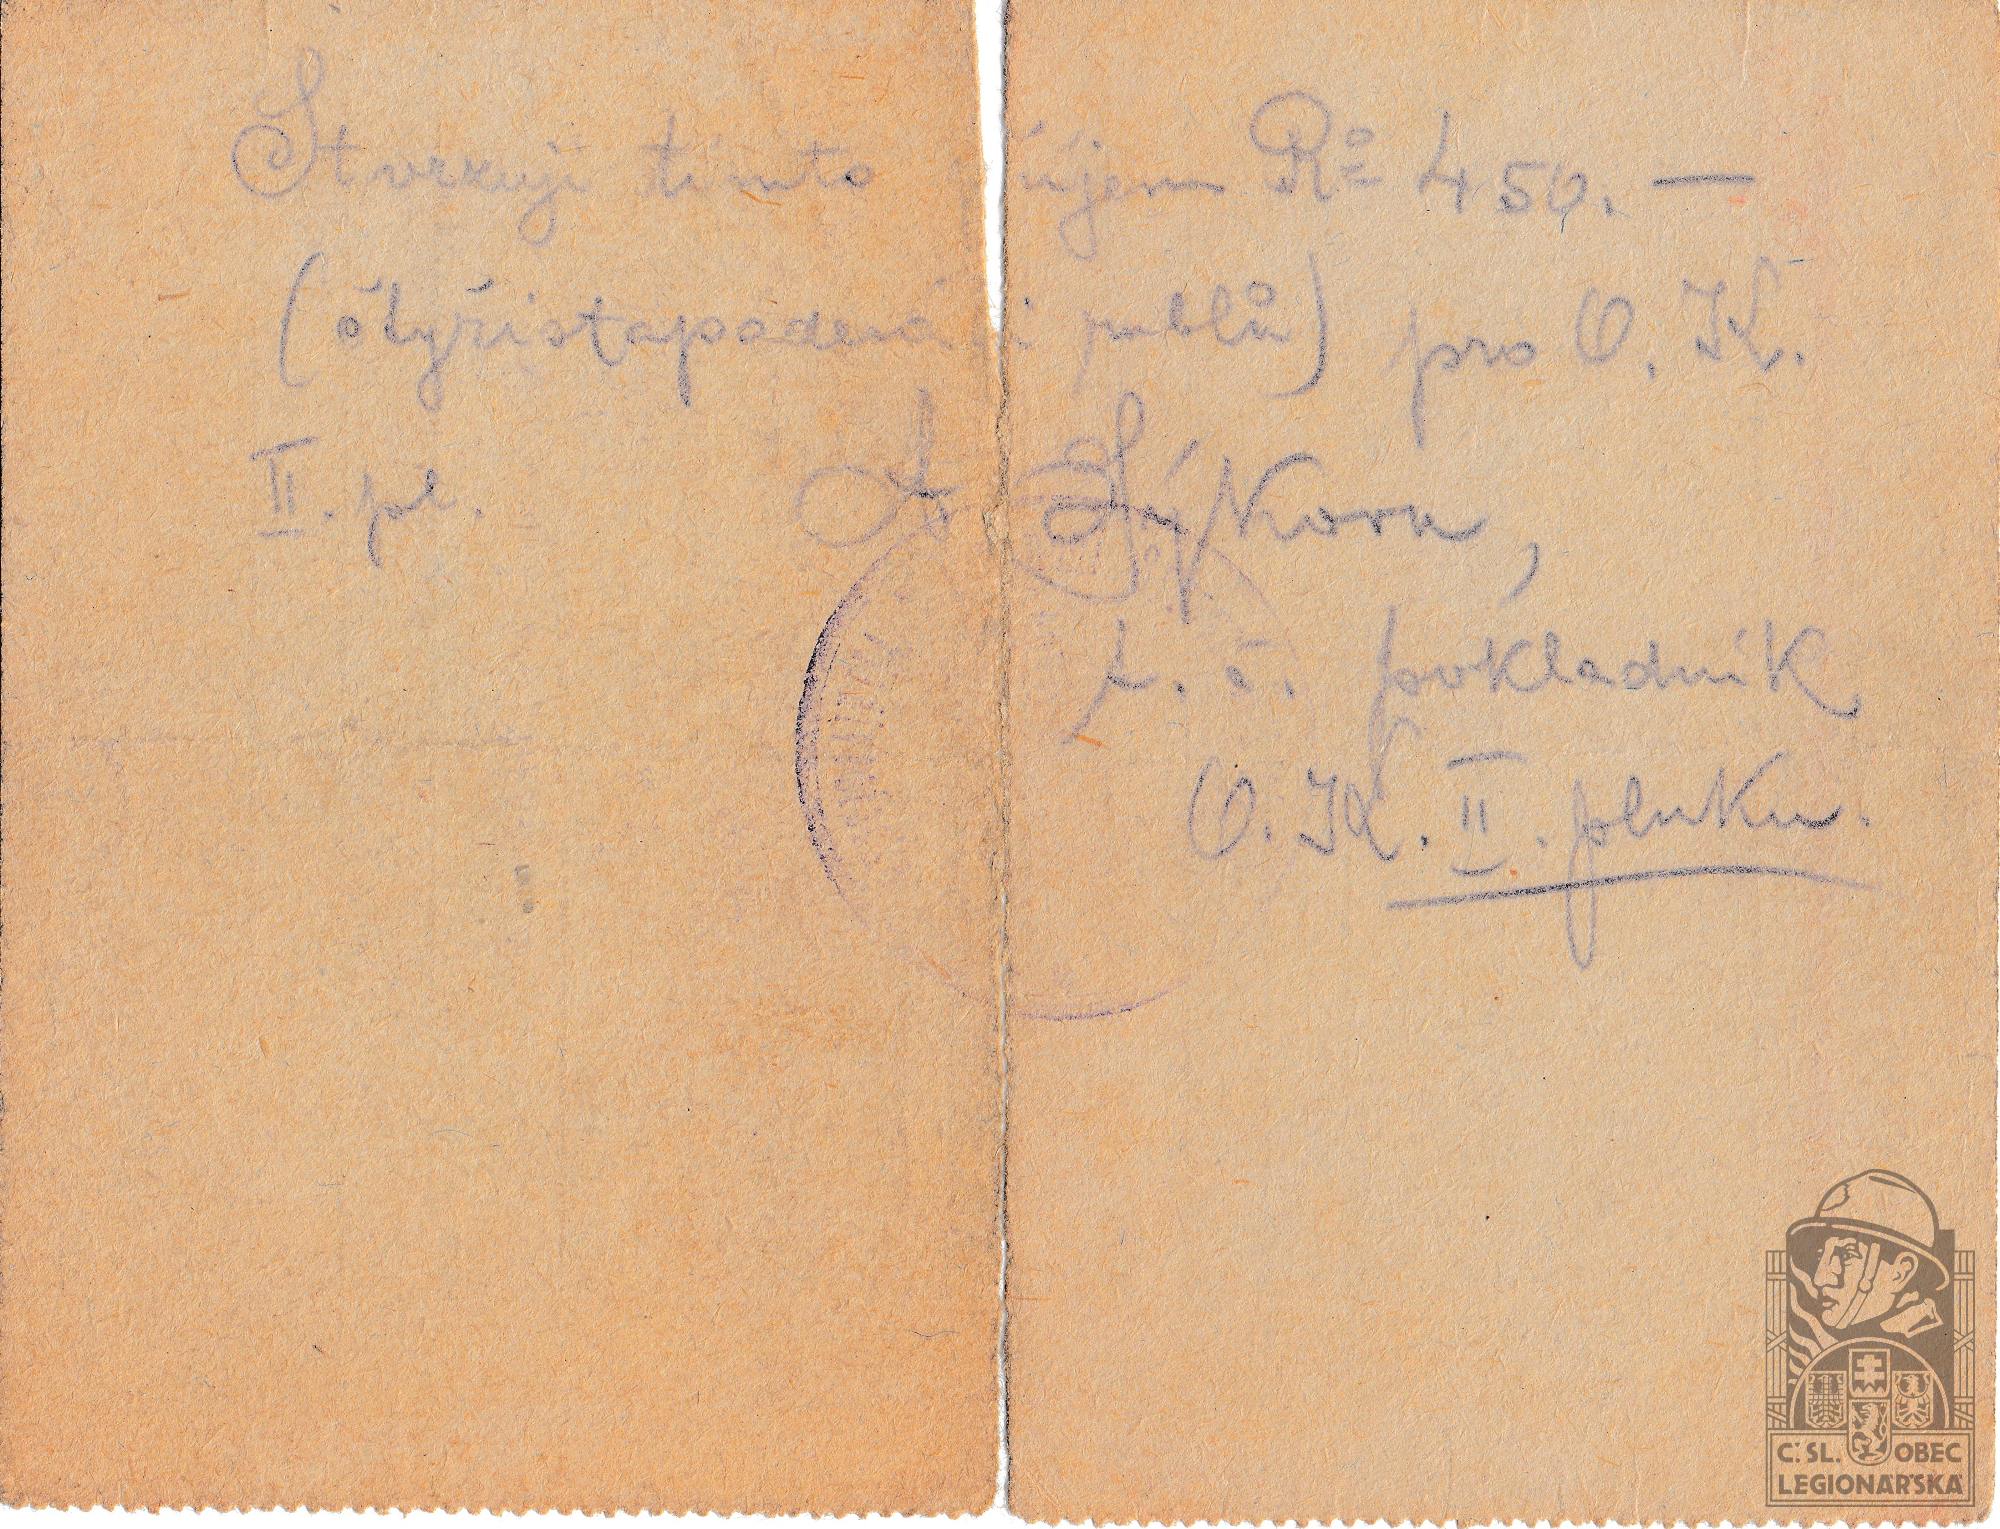 Stvrzuji tímto příjem Rº 450.—
(čtyřistapadesáti rublů) pro O. K.
II. pl. Sýkora,
t. č. pokladník
O. K. II. pluku.
Č.SL. OBEC
LEGIONÁŘSKÁ